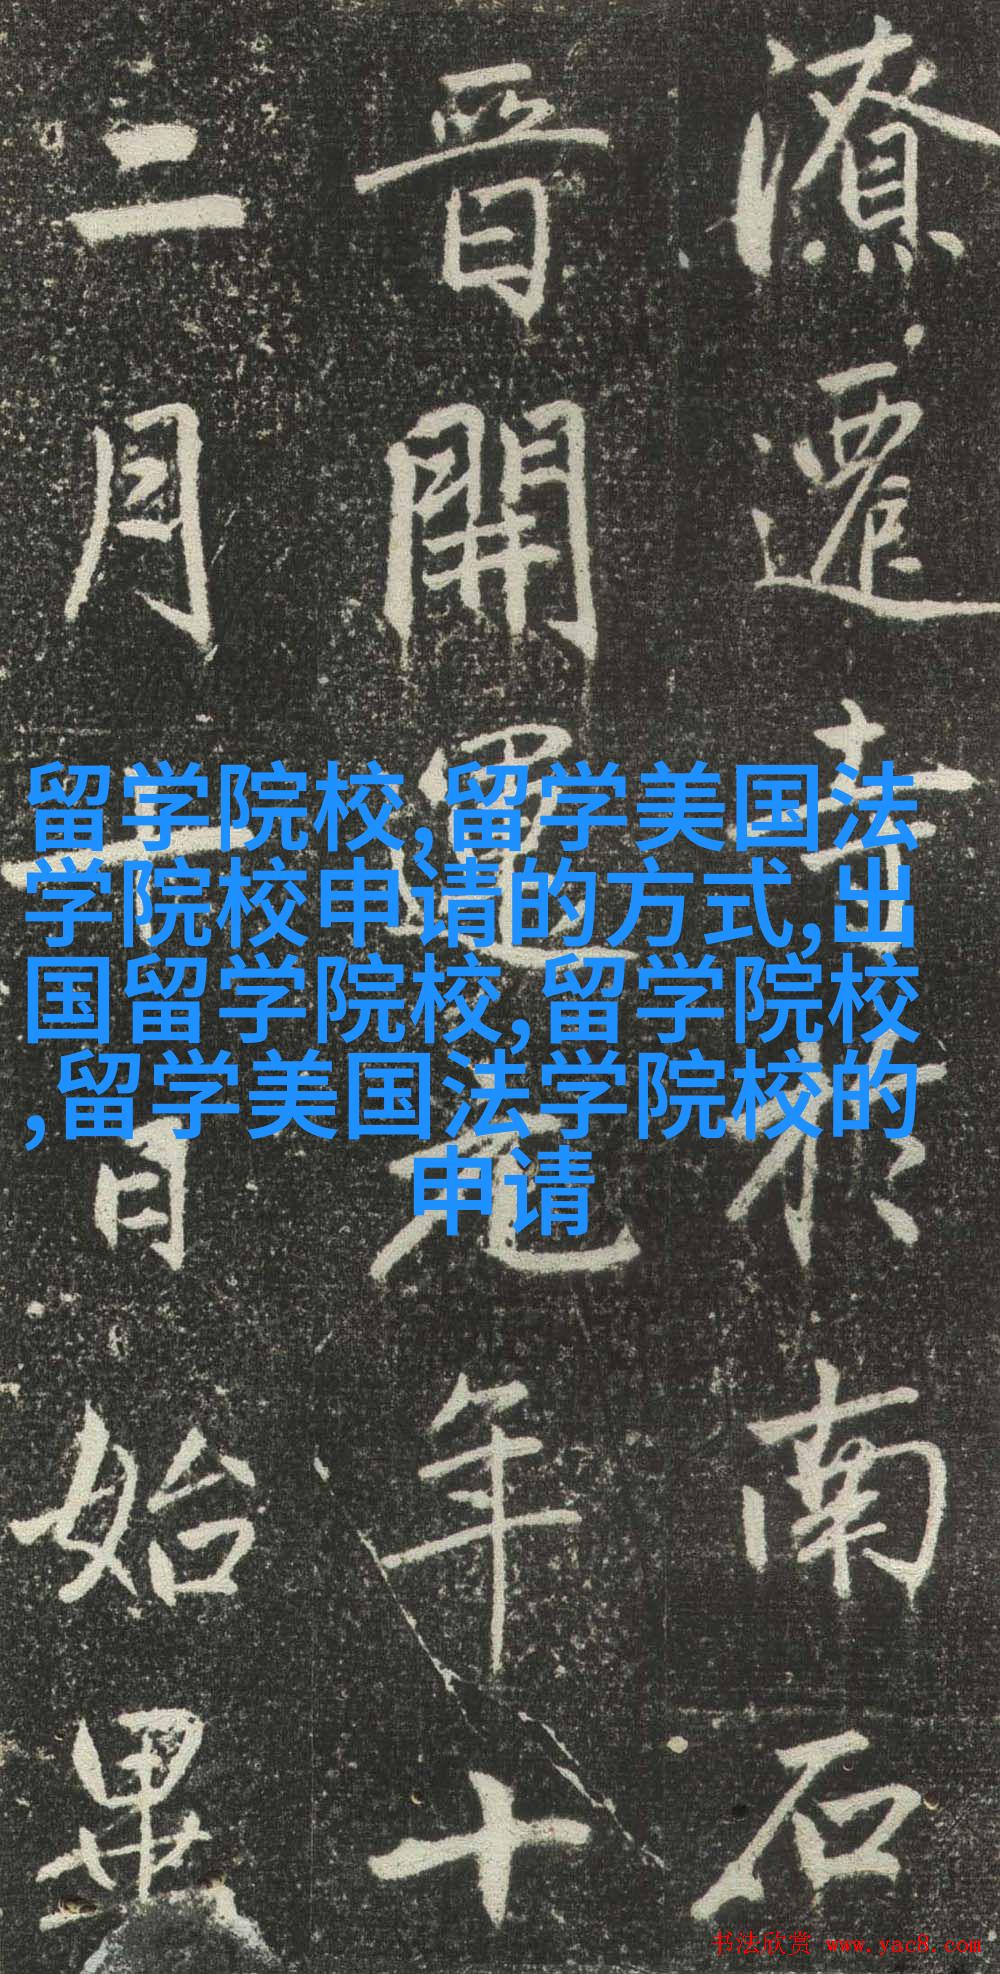 潦遷寺於南石
晉開運元年十
二月十日始畢
留学院校,留学美国法
学院校申请的方式,出
国留学院校,留学院校
,留学美国法学院校的
申请
书法欣赏 www.yac8.com